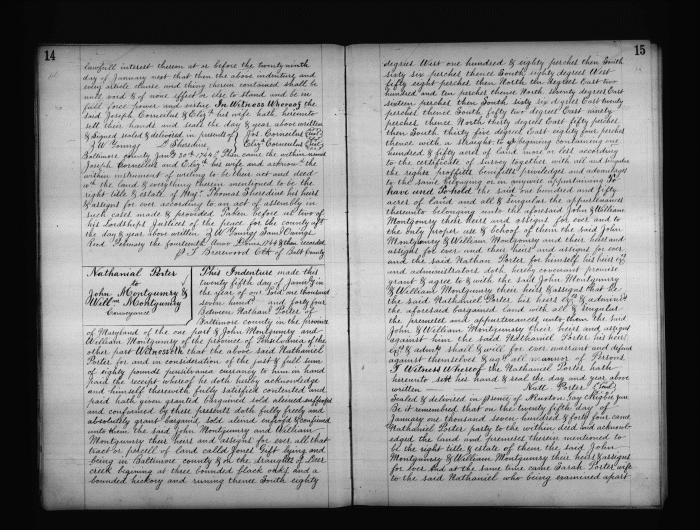 14
lawfull interest thereon at or before the twenty ninth
day of January next that then the above indenture and
every article clause and thing therein contained shall be
null void & of none effect or else to stand and be in
full force power and virtue In Witness Whereof the
said Joseph Cornelius & Eliz his wife hath hereunto
sett their hands and seals the day & year above written
& Signed sealed & delivered in presents of Jos. Cornelius
J W Young Sheredine Eliz Cornelius
Baltimore county Jan 30th Then came the within named
Joseph Cornelius and Eliz his wife and acknow the
within instrument of writing to be their act and deed
the land & everything therein mentioned to be the
right title & estate of Maj. Thomas Sheredine his heirs
& assigns for ever according to an act of assembly in
such cases made & provided Taken before us two of
his Lordships Justices of the peace for the county aft
the day & year above written W Young Saml Owings
Recd February the fourteenth Anno Domi & then recorded
Brerewood Clk of Balt County
Nathanial Porter
to
John Montgumry &
Willm Montgumry
Conveyance
This Indenture made this
twenty fifth day of in
the year of our Lord one thousand
seven hund and forty four
Between Nathanl Porter of
Baltimore county in the province
of Maryland of the one part & John Montgomry and
William Montgomry of the province of Pensilvania of the
other part Witnesseth that the above said Nathaniel
Porter for and in consideration of the just & full sum
of eighty pounds pensilvania currancy to him in hand
paid the receipt whereof he doth hereby acknowledge
and himself therewith fully satisfied contented and
paid hath given granted bargained sold aliened enfeoffed
and confirmed by these presents doth fully freely and
absolutely grant bargain sold aliend enfeofd & confirmed
unto them the said John Montgomry and William
Montgomry their heirs and assigns for ever all that
tract or parcell of land called Jones Gift lying and
being in Baltimore county & on the draughts of Deer
creek begining at three bounded black oaks and a
bounded hickory and runing thence South eighty
15
degrees West one hundred & eighty perches then South
sixty six perches thence South eighty degrees West
fifty eight perches then North ten degrees East two
hundred and ten perches thence North seventy degrees East
sixteen perches then South sixty six degrees East twenty
perches thence South fifty two degrees East ninety
perches thence North thirty degrees East fifty perches
then South thirty five degrees East eighty four perches
thence with a straight to begining containing one
hundred & fifty acres of land more or less according
to the certificate of survey together with all and singular
the rights proffitts benefitts priviledges and advantages
to the same belonging or in anywise appurtaining To
have and To hold the said one hundred and fifty
acres of land and all & singular the appurtenances
thereunto belonging unto the aforesaid John & William
Montgomry their heirs and assigns for ever and to
the only proper use & behoof of them the said John
Montgomry & William Montgomry and their heirs and
assigns for ever and their heirs and assigns for ever
and the said Nathan Porter for himself his heirs
and administrators doth hereby covenant promise
grant & agree to & with the said John Montgomry
& William Montgomry their heirs & assigns that he
the said Nathaniel Porter his heirs &
the aforesaid bargained land with all & singular
the premeses and appurtenances unto them the said
John & William Montgomry their heirs and assigns
against him the said Nathaniel Porter his heirs
& shall & will for ever warrant and defend
against themselves & all mannor of Persons
In Witness Whereof the Nathaniel Porter hath
hereunto set his hand & seal the day and year above
written Natl. Porter
Sealed & delivered in of
Be it remembred that on the twenty fifth day of
January one thousand seven hundred & forty four came
Nathaniel Porter party to the within deed and acknowl
edged the land and premeses therein mentioned to
be the right title & estate of them the said John
Montgomry & William Montgomry their heirs & assigns
for ever And at the same time came Sarah Porter wife
to the said Nathaniel who being examined apart